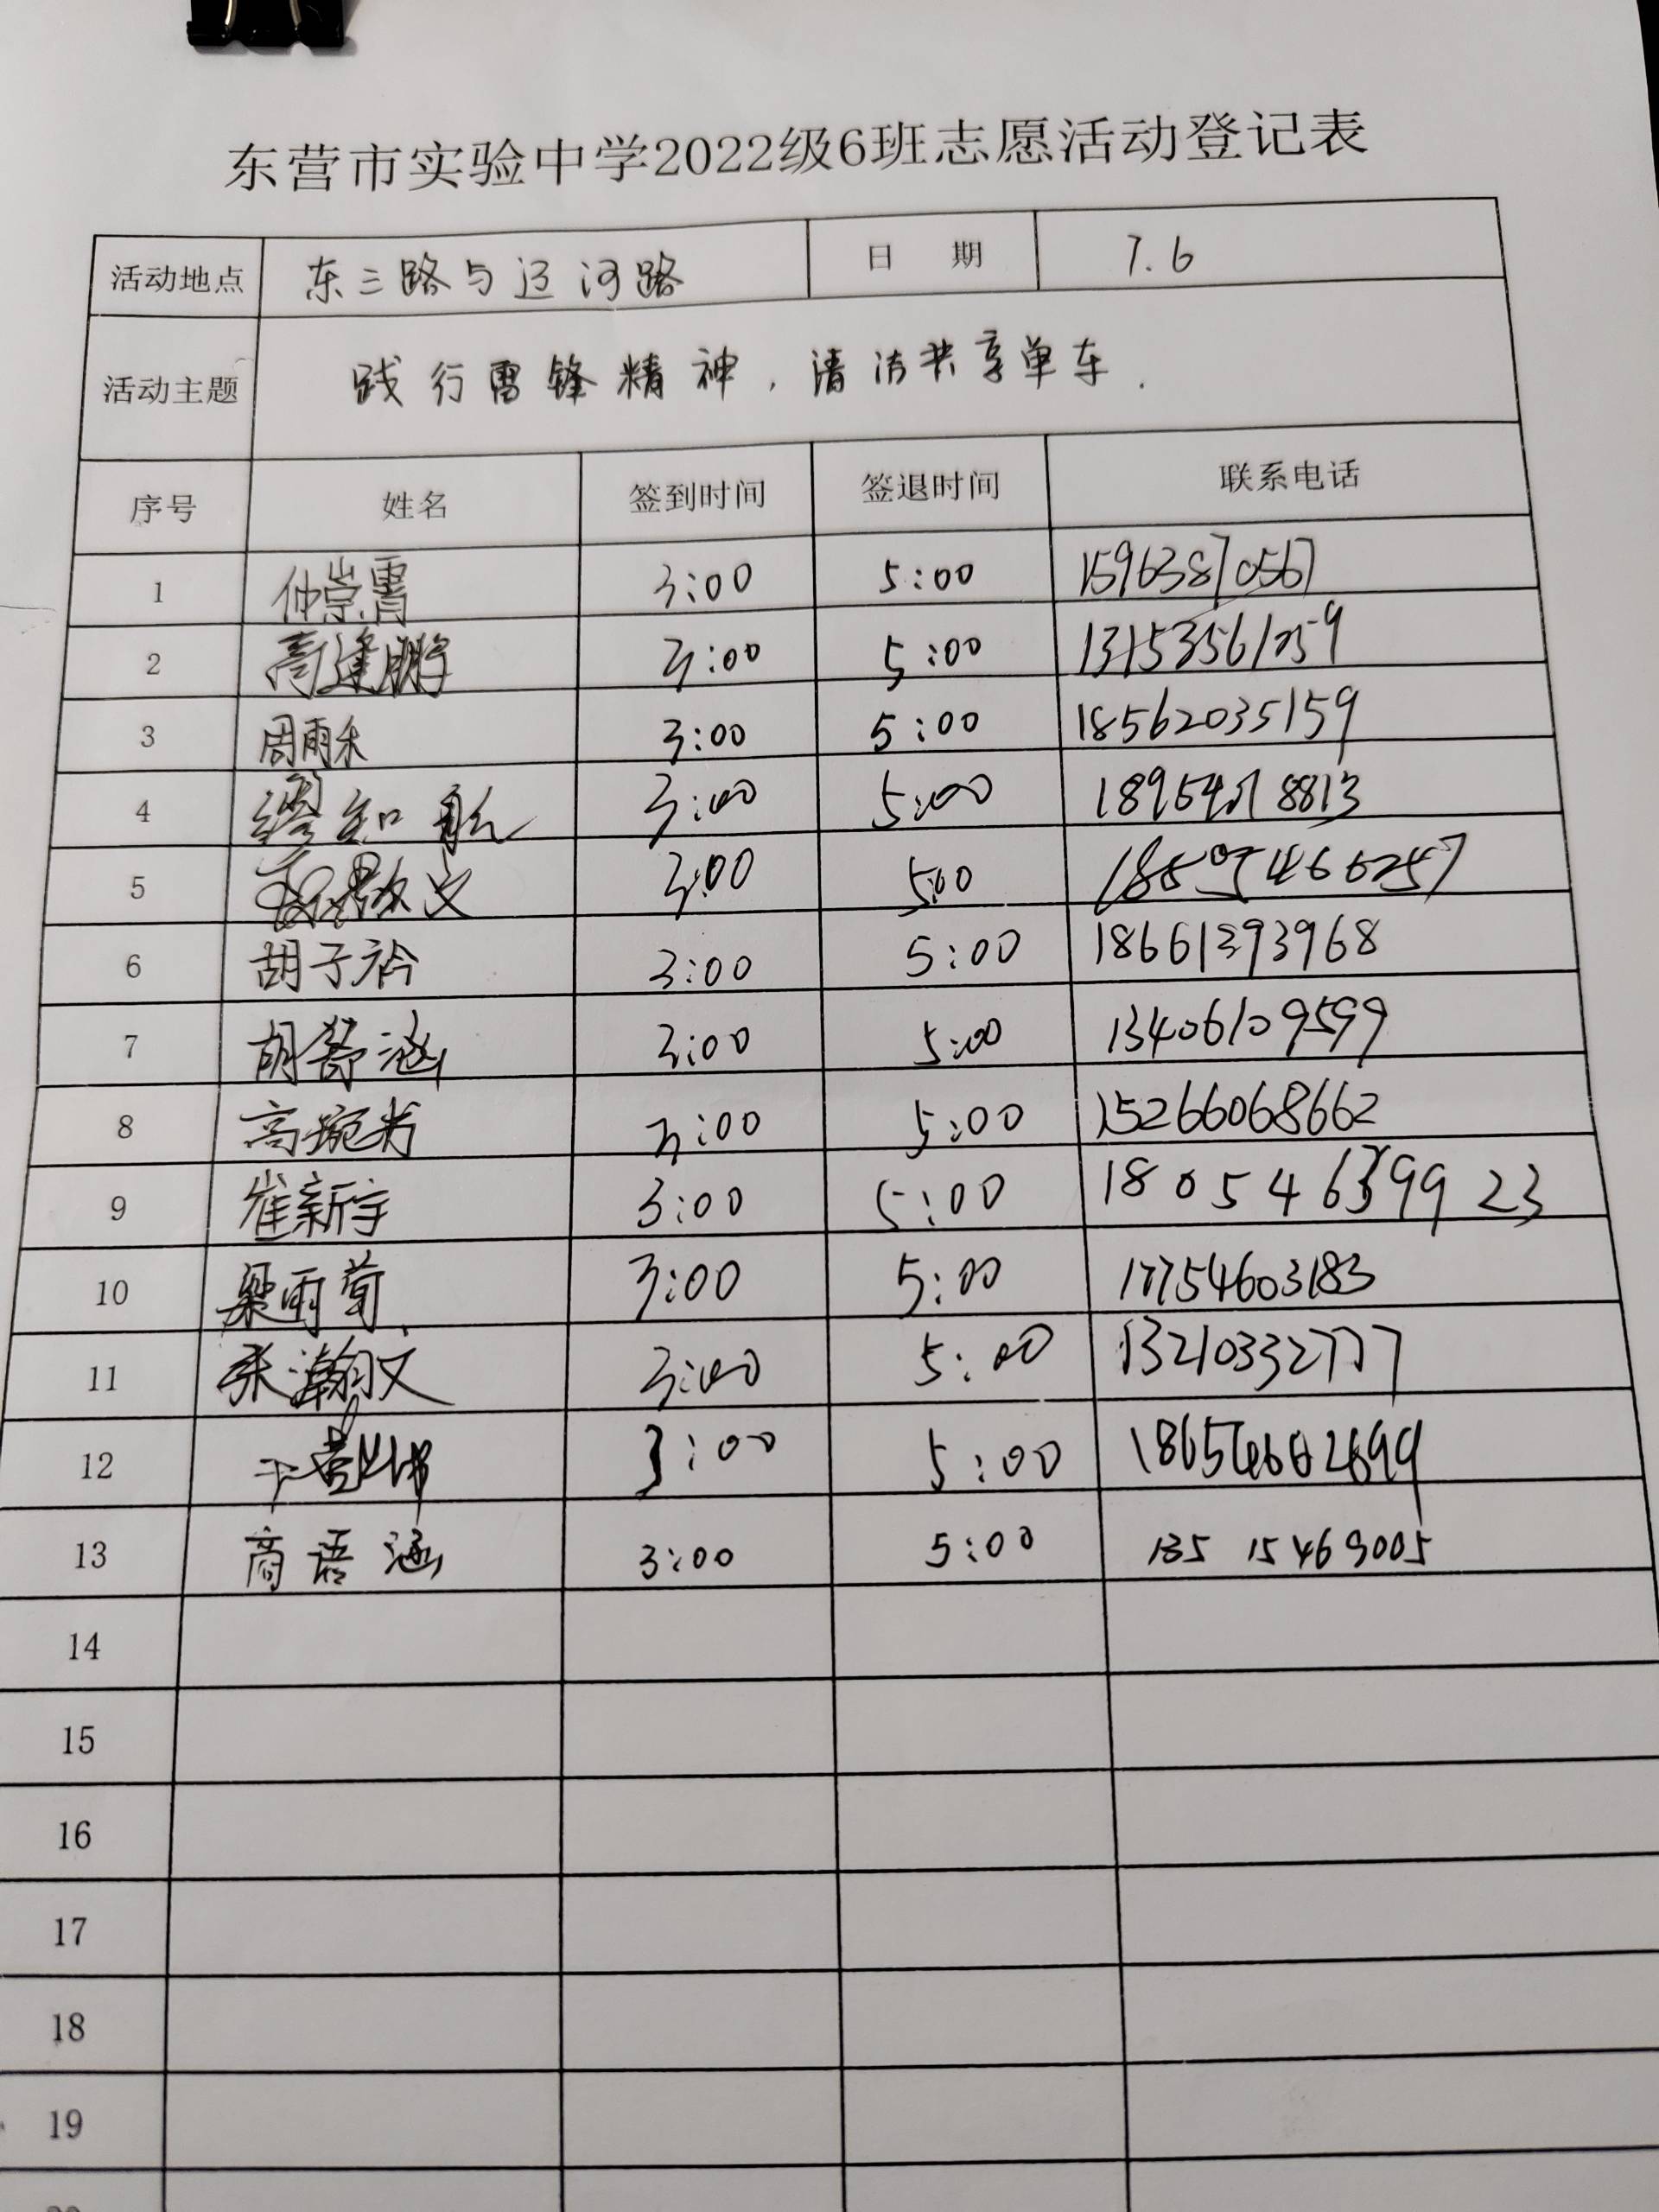 东营市实验中学2022级6班志愿活动登记表
活动地点 东三路与运河路 日 期 7.6
活动主题 践行雷锋精神，清洁共享单车.
序号 姓名 签到时间 签退时间 联系电话
1 仲崇霄 3:00 5:00 15963870567
2 高逢鹏 3:00 5:00 13153561059
3 周雨禾 3:00 5:00 18562035159
4 缪知航 3:00 5:00
5 3:00 5:00
6 胡子衿 3:00 5:00 18661393968
7 胡馨涵 3:00 5:00 13406109599
8 高琬 3:00 5:00 15266068662
9 崔新宇 3:00 5:00
10 梁雨萱 3:00 5:00 17754603183
11 张瀚文 3:00 5:00 13210332777
12 3:00 5:00
13 商语涵 3:00 5:00 135 15469005
14
15
16
17
18
19